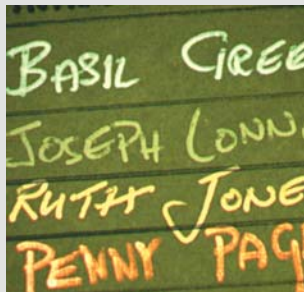 BASIL GREE
JOSEPH LONN
RUTH JONE
PENNY PAG